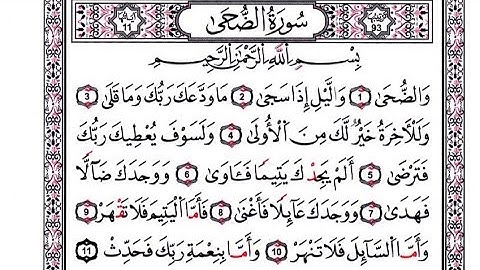 آياتها 11 سورة الضحى ترتيبها 93
بِسْمِ اللَّهِ الرَّحْمَٰنِ الرَّحِيمِ
وَالضُّحَىٰ ﴿1﴾ وَالَّيْلِ إِذَا سَجَىٰ ﴿2﴾ مَا وَدَّعَكَ رَبُّكَ وَمَا قَلَىٰ ﴿3﴾
وَلَلْآخِرَةُ خَيْرٌ لَّكَ مِنَ الْأُولَىٰ ﴿4﴾ وَلَسَوْفَ يُعْطِيكَ رَبُّكَ
فَتَرْضَىٰ ﴿5﴾ أَلَمْ يَجِدْكَ يَتِيمًا فَـَٔاوَىٰ ﴿6﴾ وَوَجَدَكَ ضَآلًّا
فَهَدَىٰ ﴿7﴾ وَوَجَدَكَ عَآئِلًا فَأَغْنَىٰ ﴿8﴾ فَأَمَّا الْيَتِيمَ فَلَا تَقْهَرْ ﴿9﴾
وَأَمَّا السَّآئِلَ فَلَا تَنْهَرْ ﴿10﴾ وَأَمَّا بِنِعْمَةِ رَبِّكَ فَحَدِّثْ ﴿11﴾